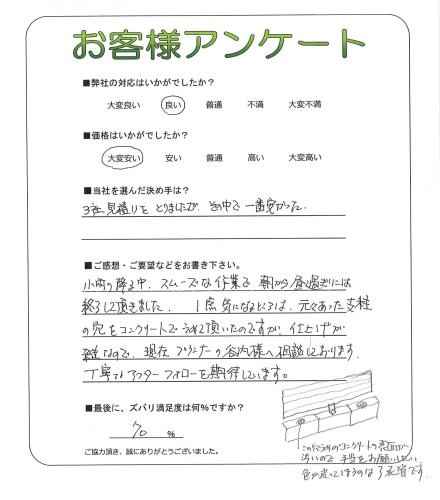 お客様アンケート
■弊社の対応はいかがでしたか?
大変良い 良い 普通 不満 大変不満
■価格はいかがでしたか?
大変安い 安い 普通 高い 大変高い
■当社を選んだ決め手は?
3社見積りをとりましたが、その中で一番安かった。
■ご感想・ご要望などをお書き下さい。
小雨の降る中、スムーズな作業で朝から昼過ぎには
終了して頂きました。1点気になるところは、元々あった支柱
の穴をコンクリートでうめて頂いたのですが、仕上げが
雑なので、現在プランナーの谷内様へ相談しております。
丁寧なアフターフォローを期待しています。
■最後に、ズバリ満足度は何%ですか?
70 %
ご協力頂き、誠にありがとうございました。
この穴うめのコンクリートの表面が
ので 手当をお願いしたい
色が違ってしまうのは了承済です。